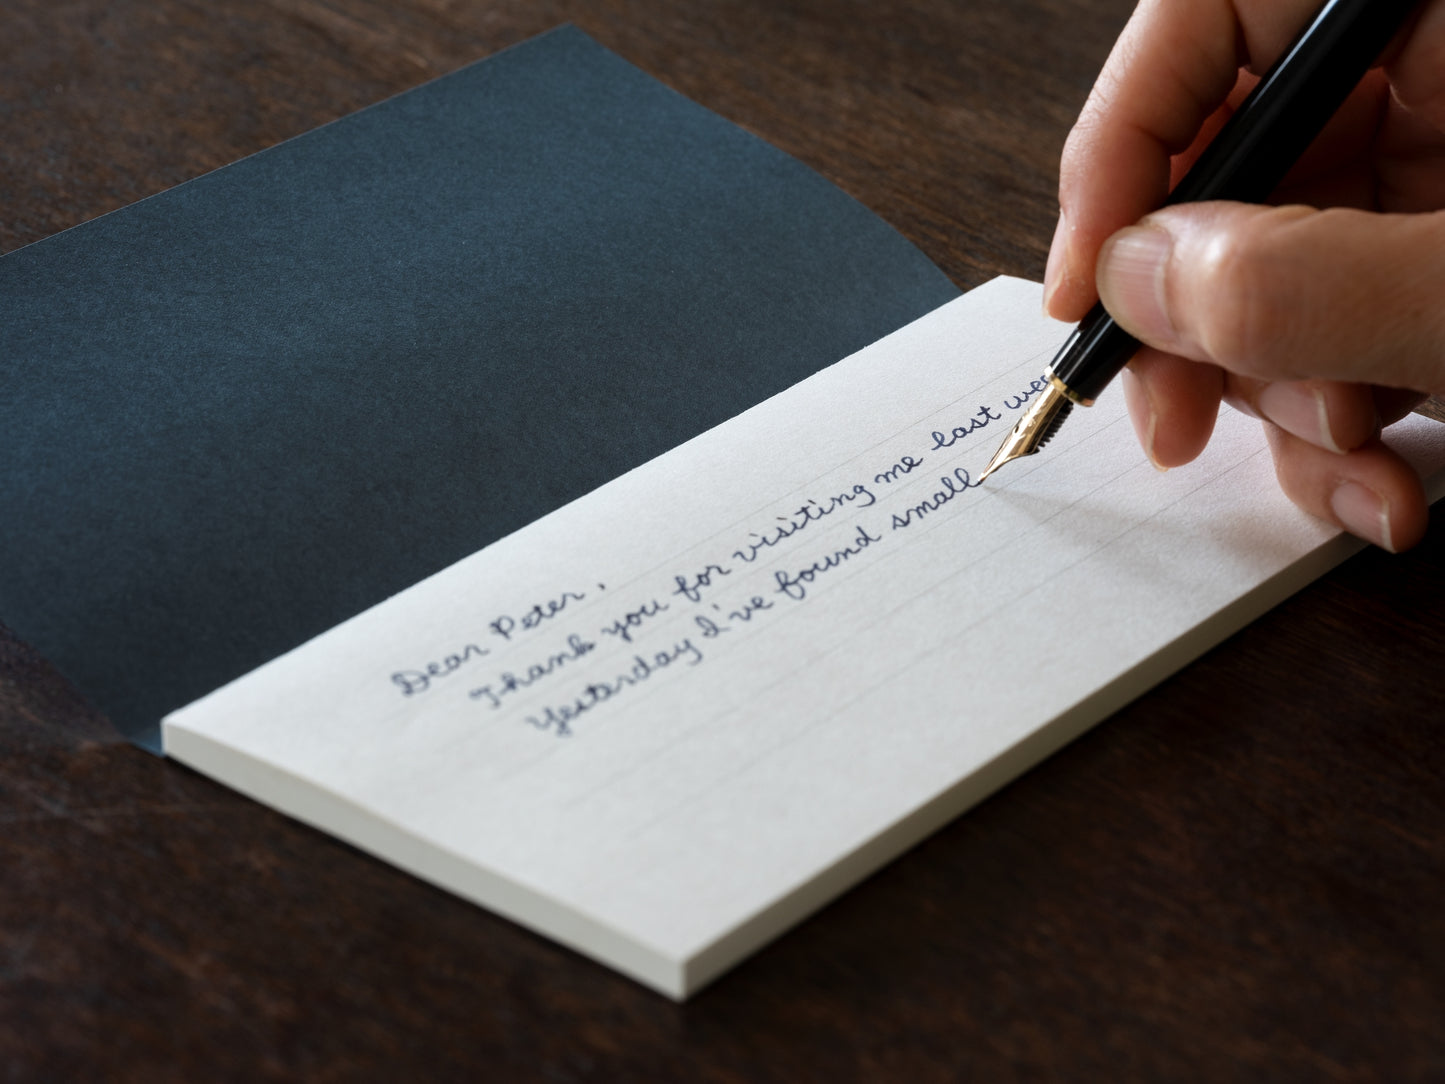 Dear Peter,
Thank you for visiting me last wee
Yesterday I've found small